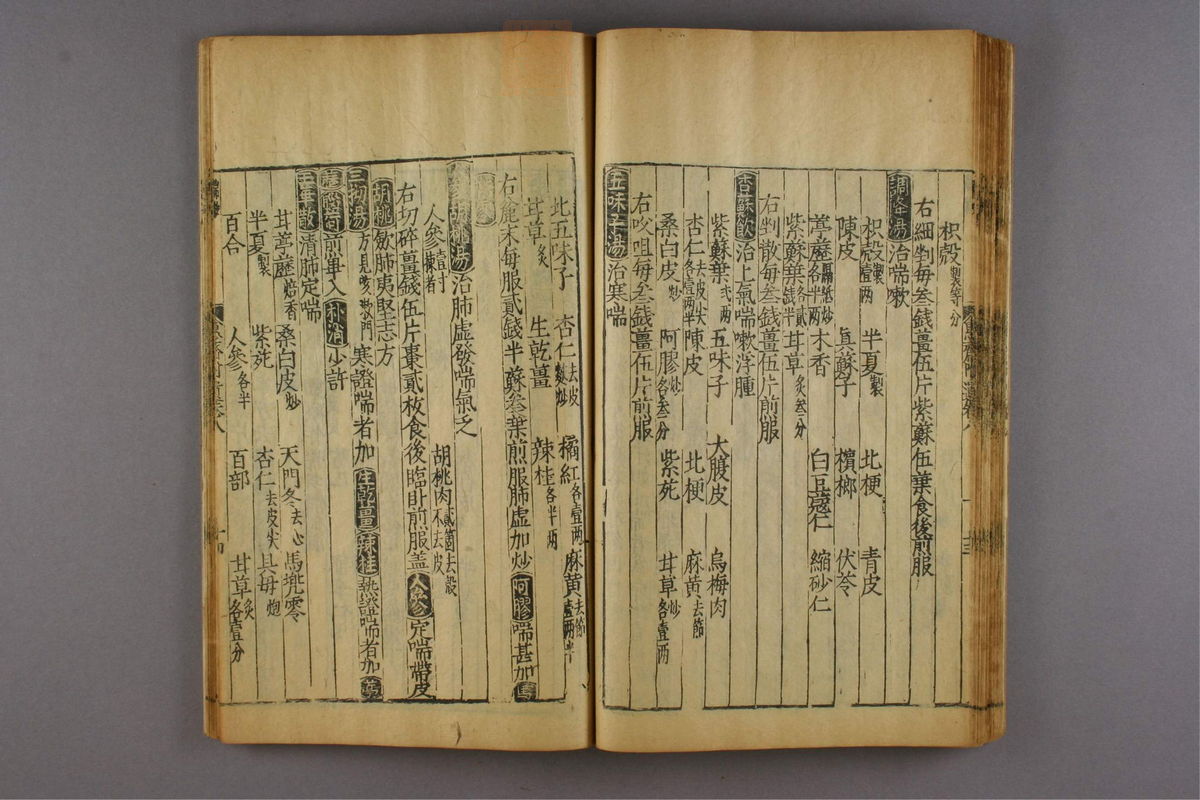 枳殼製等分
右細剉每叁錢薑伍片紫蘇伍葉食後煎服
調降湯治喘嗽
枳殼製壹两 半夏製 北梗 青皮
陳皮 真蘇子 檳榔 伏苓
葶藶隔紙炒各半两 木香 白豆蔻仁 縮砂仁
紫蘇葉各貳錢半 甘草炙叁分
右剉散每叁錢薑伍片煎服
杏蘇飲治上氣喘嗽浮腫
紫蘇葉弍两 五味子 大腹皮 烏梅肉
杏仁去皮尖各壹两半 陳皮 北梗 麻黄去節
桑白皮炒 阿膠炒各叁分 紫苑 甘草炒各壹两
右㕮咀每叁錢薑伍片煎服
五味子湯治寒喘
北五味子 杏仁去皮麩炒 橘紅各壹两 麻黄去節壹两半
甘草炙 生乾薑 辣桂各半两
右麄末每服貳錢半蘇叁葉煎服肺虛加炒阿膠喘甚加馬
兜零
人參胡桃湯治肺虛發喘氣乏
人參壹寸 胡桃肉貳箇去殼不去皮
右切碎薑錢伍片棗貳枚食後臨卧煎服盖人參定喘帶皮
胡桃斂肺夷堅志方
三拗湯方見咳嗽門寒證喘者加生乾薑辣桂熱證喘者加
煎畢入朴消少許
清肺定喘
甘葶藶焙香 桑白皮炒 天門冬去心 馬兜零
半夏製 紫苑 杏仁去皮尖 貝母炮
百合 人參各半 百部 甘草炙各壹分